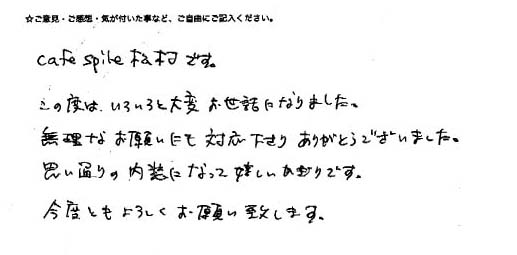 ☆ご意見・ご感想・気が付いた事など、ご自由にご記入ください。
cafe spile 松村です。
この度は、いろいろと大変お世話になりました。
無理なお願いにも対応下さりありがとうございました。
思い通りの内装になって嬉しいかぎりです。
今度ともよろしくお願い致します。